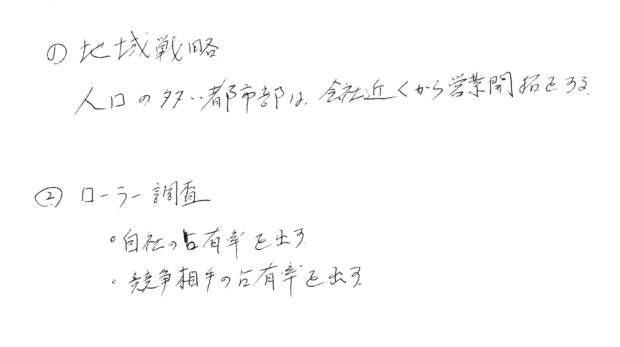 ① 地域戦略
人口の多い都市部は、会社近くから営業開拓をする。
② ローラー調査
・自社の占有率を出す
・競争相手の占有率を出す